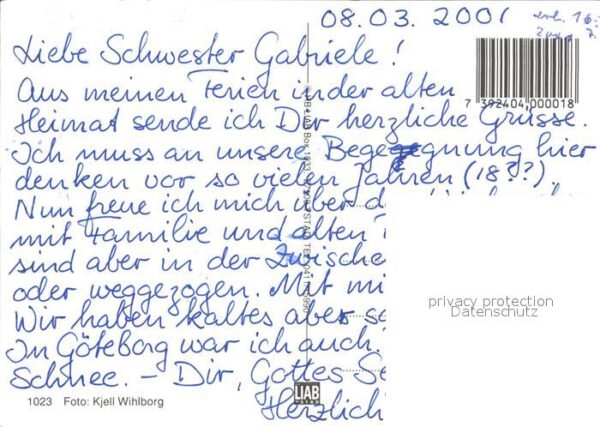 08.03.2001
Liebe Schwester Gabriele!
Aus meinen Ferien in der alten
7 392404 000018
Heimat sende ich Dir herzliche Grüsse.
Ich muss an unsere Begegnung hier
denken vor so vielen Jahren (18??),
Nun freue ich mich über d
mit Familie und alten
sind aber in der Zwische
oder weggezogen. Mit mi
privacy protection
Datenschutz
Wir haben kaltes aber se
In Göteborg war ich auch,
Schnee. - Dir, Gottes Se
Herzlich
1023 Foto: Kjell Wihlborg
LIAB